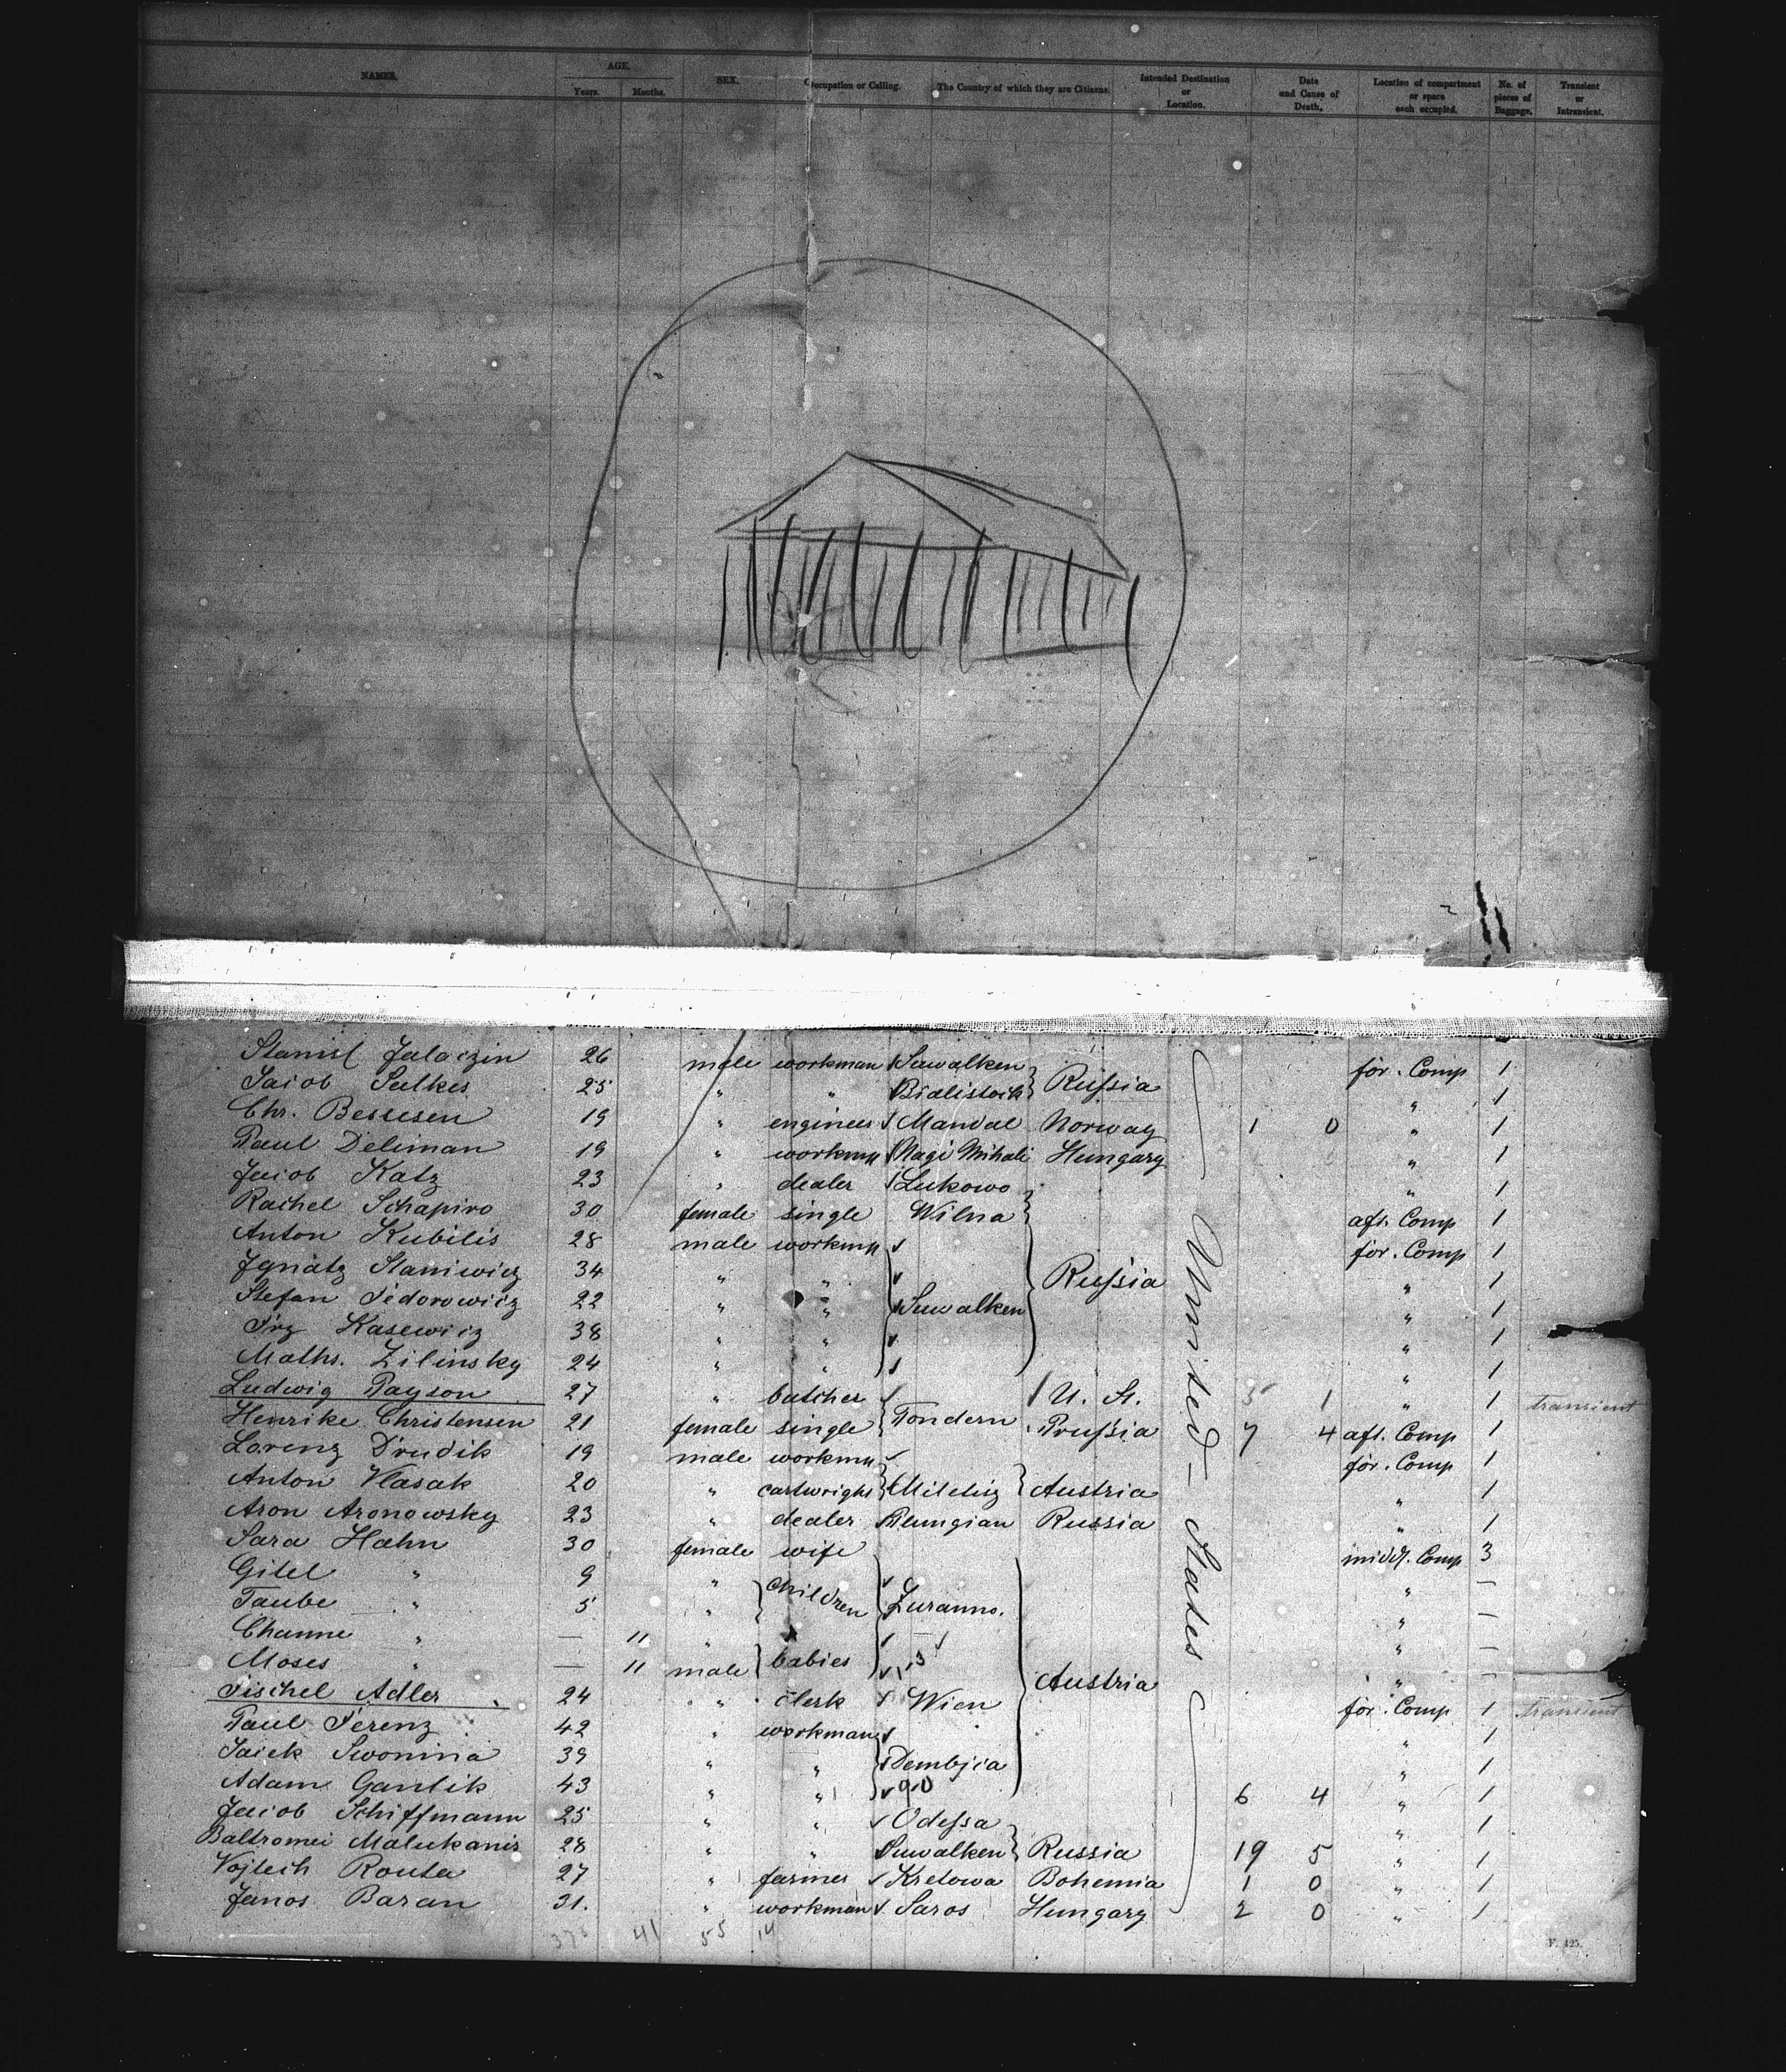 NAMES. AGE. Years. Months. SEX. Occupation or Calling. The Country of which they are Citizens. Intended Destination or Location. Date and Cause of Death. Location of compartment or space each occupied. No. of pieces of Baggage. Transient or Intransient.
Stanisl 26 male workman Suwalken för. Comp 1
Jacob 25 " " Bialistock Russia " 1
Chr. Bessesen 19 " engineer Mandal Norway 1 0 " 1
Paul Deliman 19 " workmn Nagi Mihali Hungary " 1
Jacob Katz 23 " dealer Lukowo " 1
Rachel Schapiro 30 female single Wilna aft. Comp 1
Anton Kubilis 28 male workmn för. Comp 1
Ignatz Staniwicz 34 " " Russia " 1
Stefan Fedorowicz 22 " " Suwalken " 1
Kasewicz 38 " " " 1
Maths. Zilinsky 24 " " " 1
Ludwig Payson 27 " butcher U. St. 1 " 1 transient
Henrike Christensen 21 female single Tondern Prussia 7 4 aft. Comp 1
Lorenz Drudik 19 male workmn för. Comp 1
Anton Vlasak 20 " cartwright Austria " 1
Aron Aronowsky 23 " dealer Plungian Russia " 1
Sara Hahn 30 female wife middl. Comp 3
Gitel " 9 " children " —
Taube " 5 " Zuranno. " —
Channe " — 11 " " —
Moses " — 11 male babies Austria " —
Fischel Adler 24 " clerk Wien för. Comp 1 transient
Paul Ferenz 42 " workman " 1
39 " " Dembjia " 1
Adam Gantik 43 " " 90 6 4 " 1
Jacob Schiffmann 25 " " Odessa " 1
Baltromei Malukanis 28 " " Suwalken Russia 19 5 " 1
Vojtech Routa 27 " farmer Kretowa Bohemia 1 0 " 1
Janos Baran 31. " workman Saros Hungary 2 0 " 1
United - States
41 55 14
F. 425.